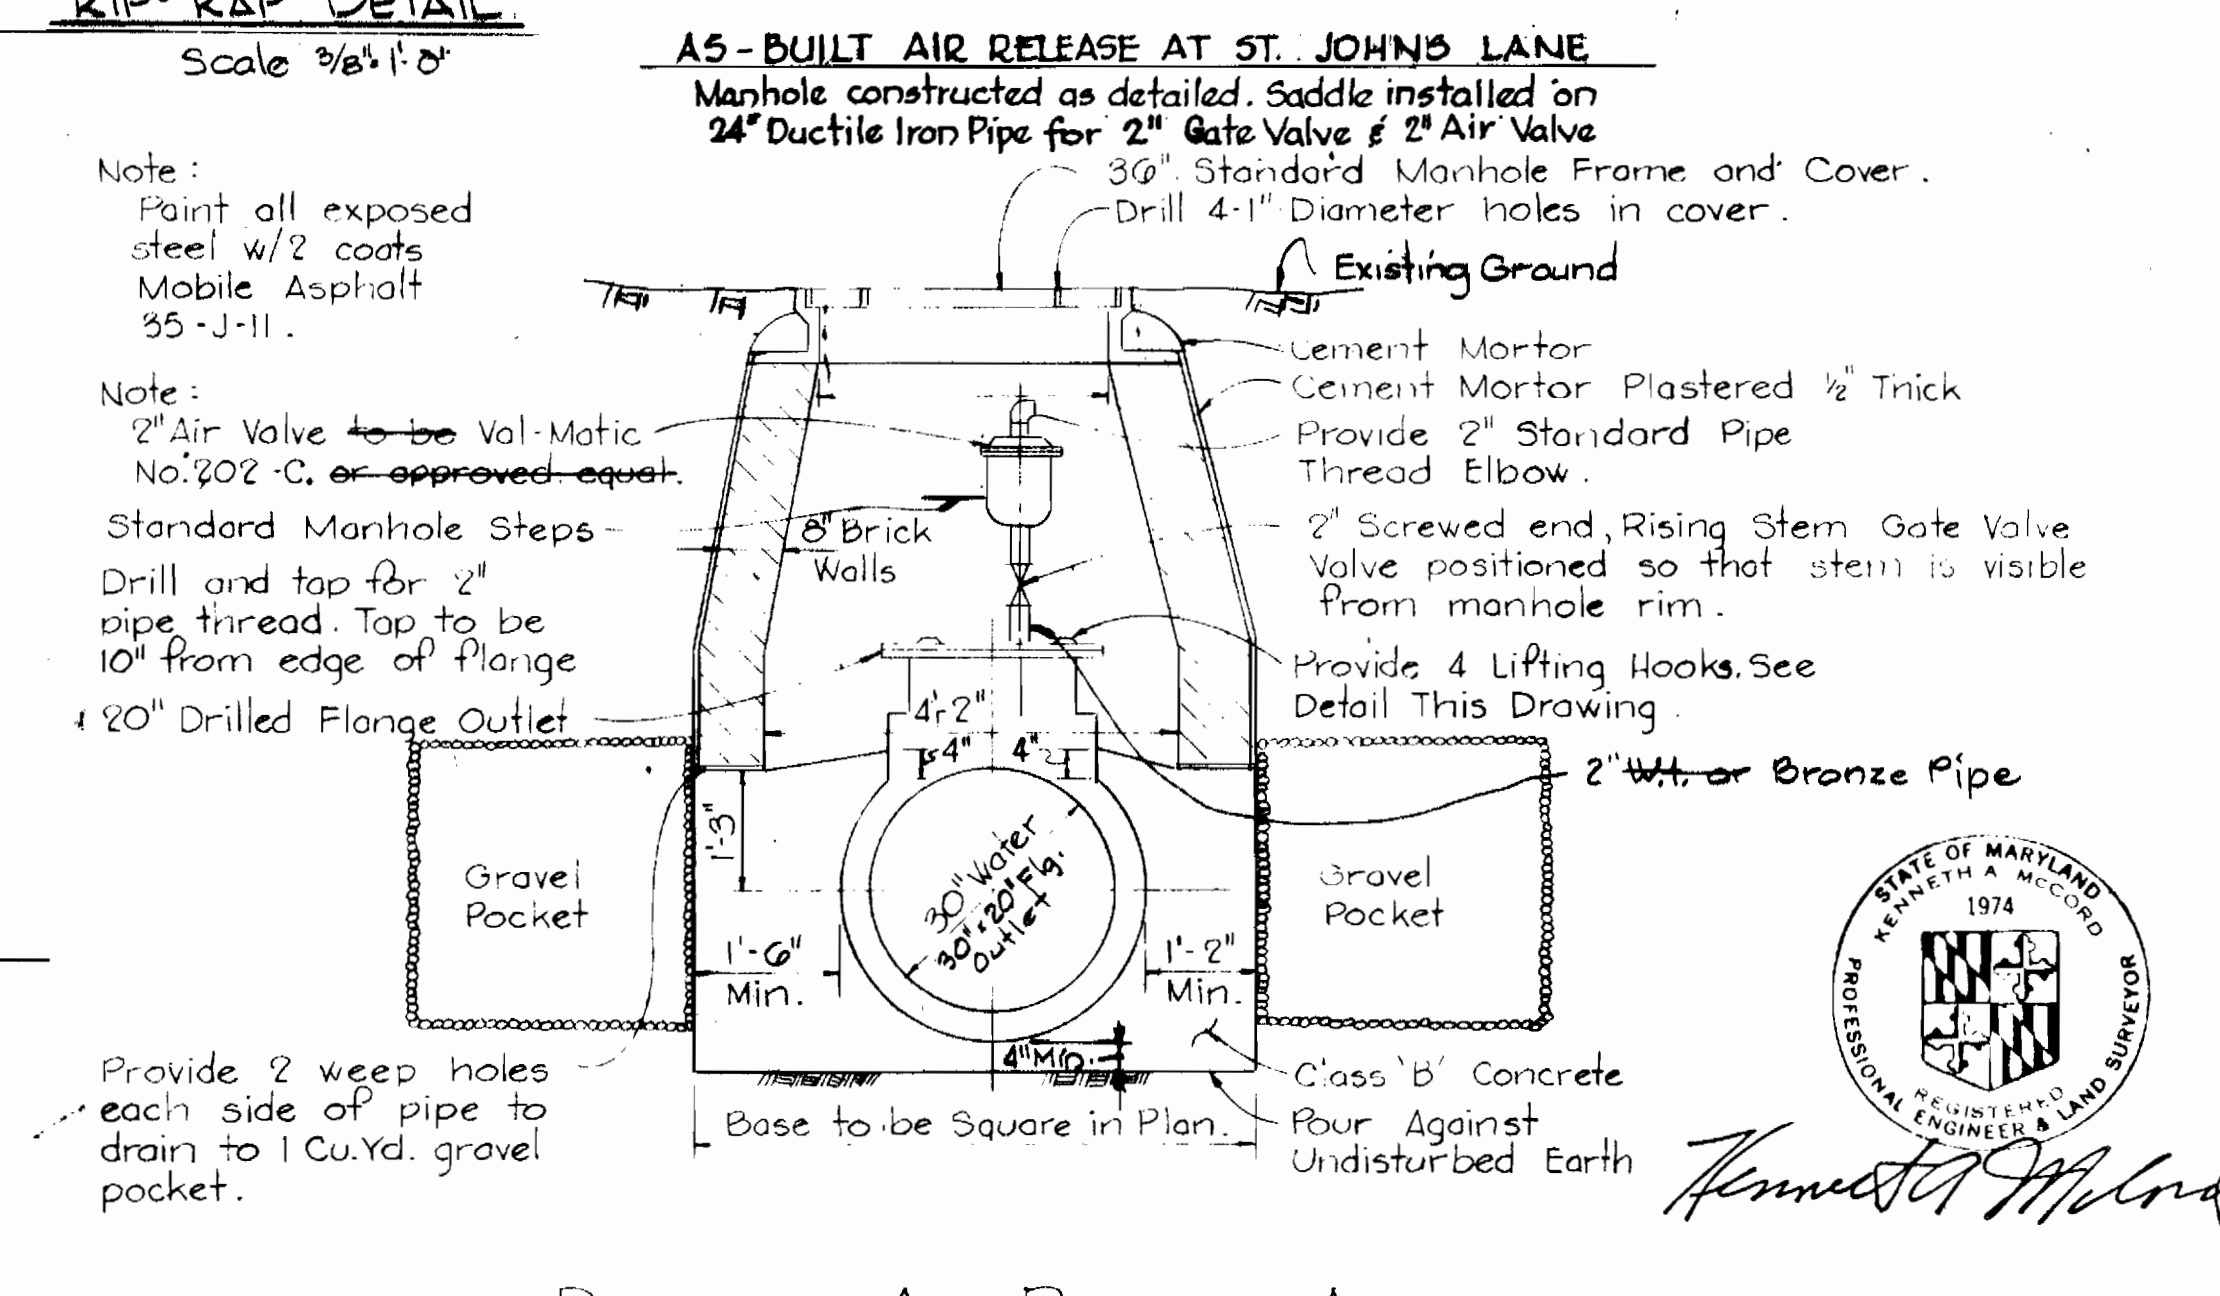 RIP-RAP DETAIL
Scale 3/8": 1'-0"
AS-BUILT AIR RELEASE AT ST. JOHNS LANE
Manhole constructed as detailed. Saddle installed on
24" Ductile Iron Pipe for 2" Gate Valve & 2" Air Valve
Note :
Paint all exposed
steel w/2 coats
Mobile Asphalt
35-J-11.
Note :
2" Air Valve to be Val-Matic
No. 202-C. or approved equal.
Standard Manhole Steps
Drill and tap for 2"
pipe thread. Tap to be
10" from edge of flange
20" Drilled Flange Outlet
36" Standard Manhole Frame and Cover.
Drill 4-1" Diameter holes in cover.
Existing Ground
Cement Mortor
Cement Mortor Plastered 1/2" Thick
Provide 2" Standard Pipe
Thread Elbow.
2" Screwed end, Rising Stem Gate Valve
Valve positioned so that stem is visible
from manhole rim.
Provide 4 Lifting Hooks. See
Detail This Drawing
2" W.I. or Bronze Pipe
8" Brick
Walls
4'-2"
4" 4"
1'-3"
30" Water
30" x 20" Flg.
Outlet
Gravel
Pocket
Gravel
Pocket
1'-6"
Min.
1'-2"
Min.
4" Min.
Provide 2 weep holes
each side of pipe to
drain to 1 Cu.Yd. gravel
pocket.
Base to be Square in Plan.
Class 'B' Concrete
Pour Against
Undisturbed Earth
STATE OF MARYLAND
KENNETH A McCORD
1974
REGISTERED
PROFESSIONAL ENGINEER & LAND SURVEYOR
Kenneth A McCord